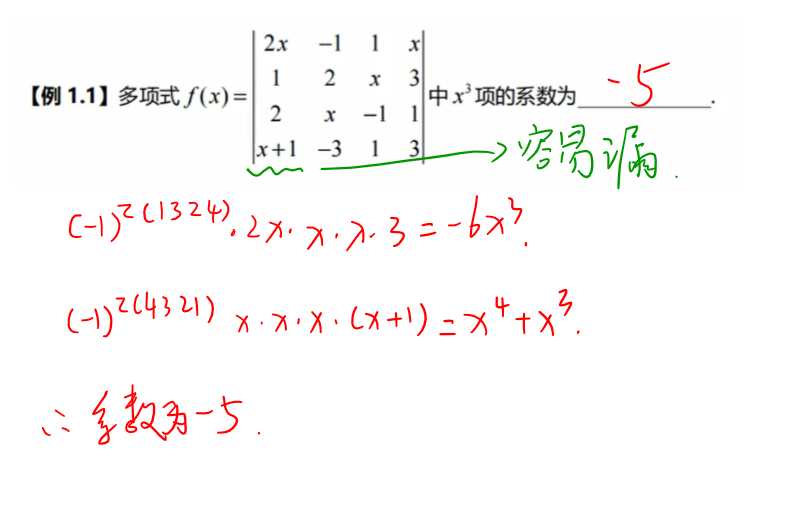 【例 1.1】多项式 f(x)=|2x -1 1 x; 1 2 x 3; 2 x -1 1; x+1 -3 1 3| 中 x³ 项的系数为 -5 .
→ 容易漏.
(-1)^τ(1324) · 2x · x · x · 3 = -6x³.
(-1)^τ(4321) x · x · x · (x+1) = x⁴+x³.
∴ 系数为 -5.